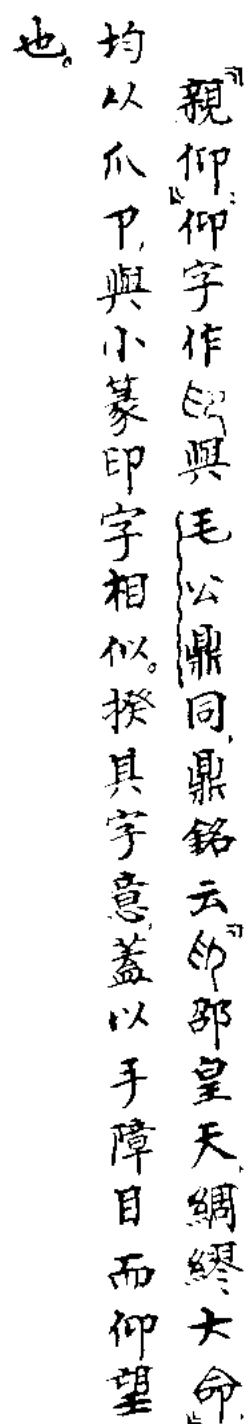 「親仰」：仰字作與毛公鼎同，鼎銘云「卬邵皇天，綢繆大命」，
均从爪卩，與小篆印字相似。揆其字意，蓋以手障目而仰望
也。